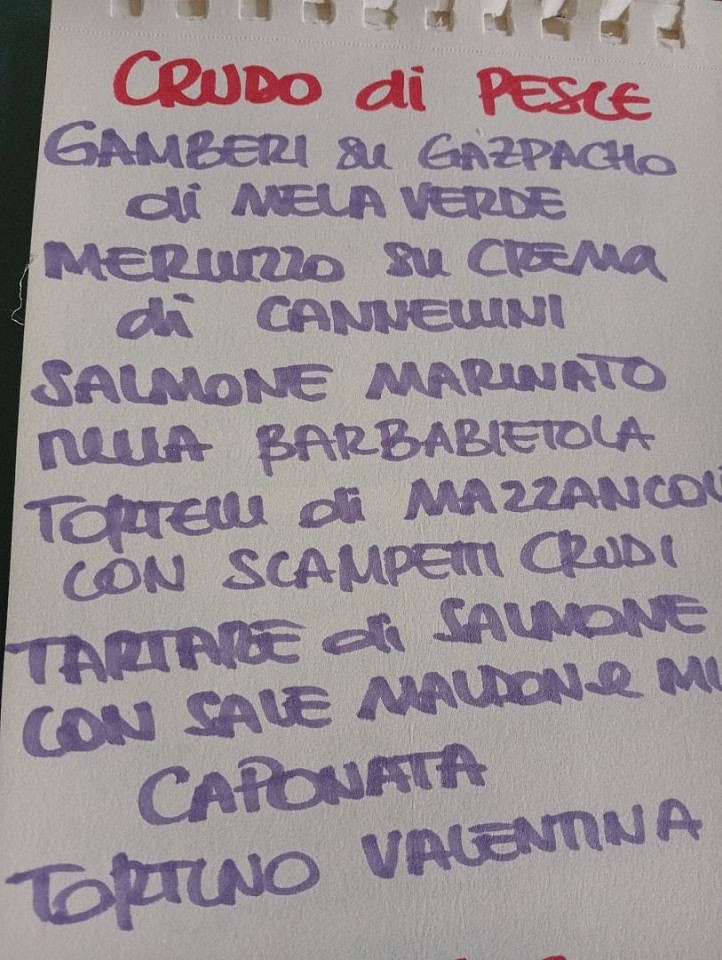 CRUDO di PESCE
GAMBERI su GAZPACHO
di MELA VERDE
MERLUZZO su CREMA
di CANNELLINI
SALMONE MARINATO
NELLA BARBABIETOLA
TORTELLI di MAZZANCOL
CON SCAMPETTI CRUDI
TARTARE di SALMONE
CON SALE MALDON e MI
CAPONATA
TORTINO VALENTINA